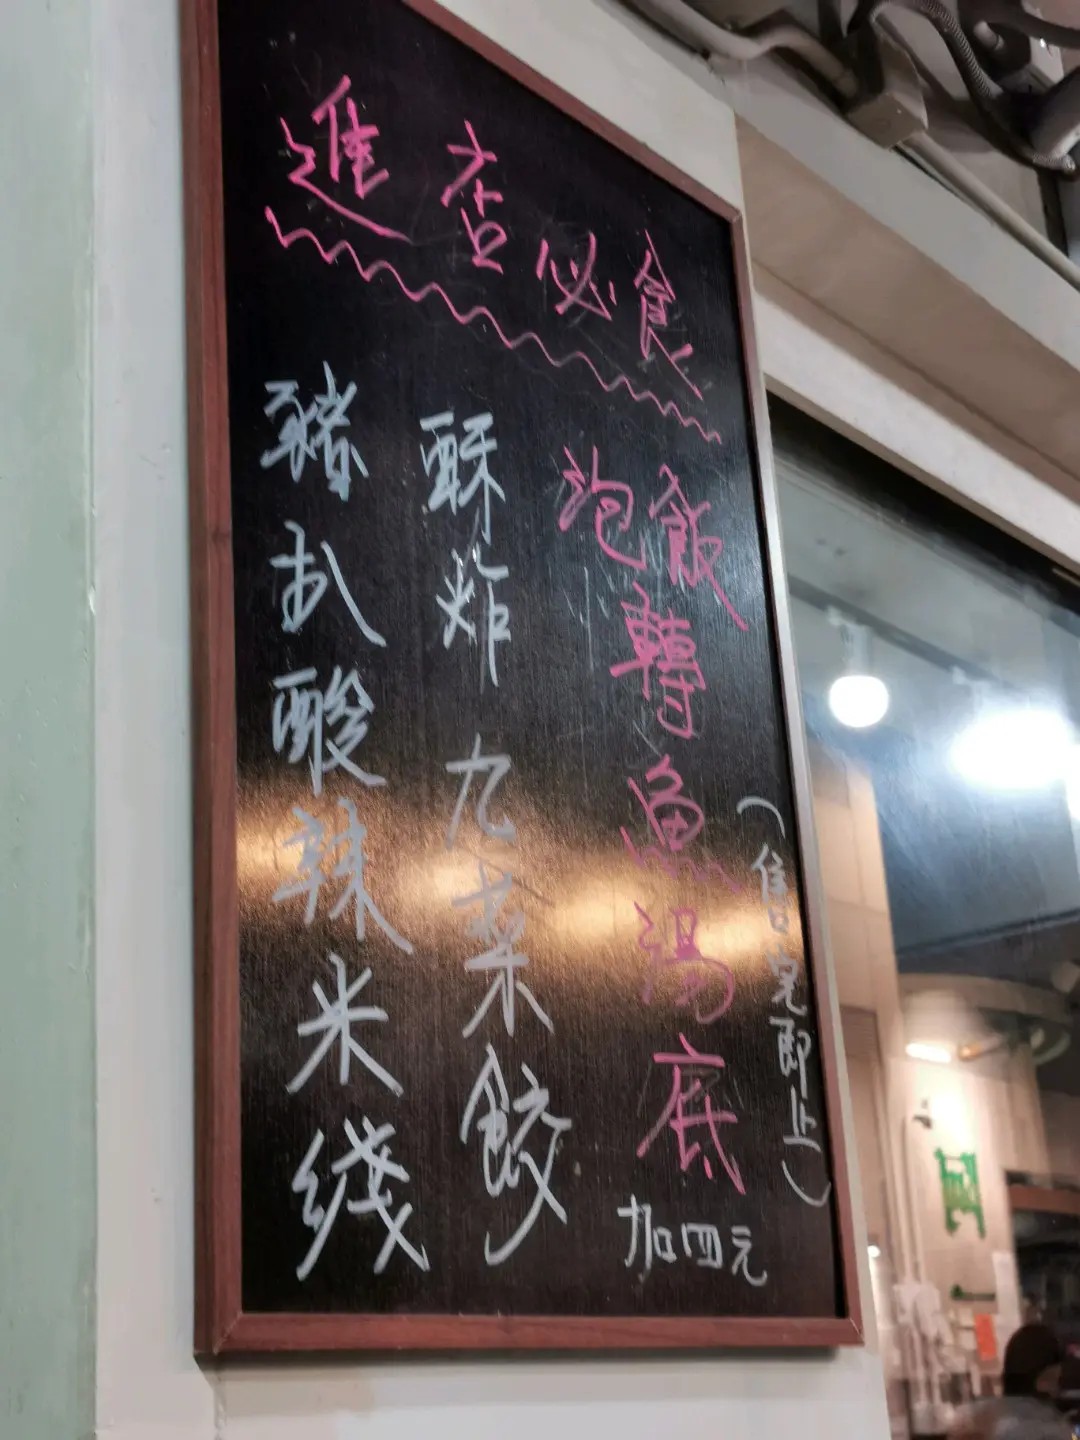 進店必食
豬扒酸辣米綫
酥炸九菜餃
泡飯轉魚湯底
加四元
(售完即止)